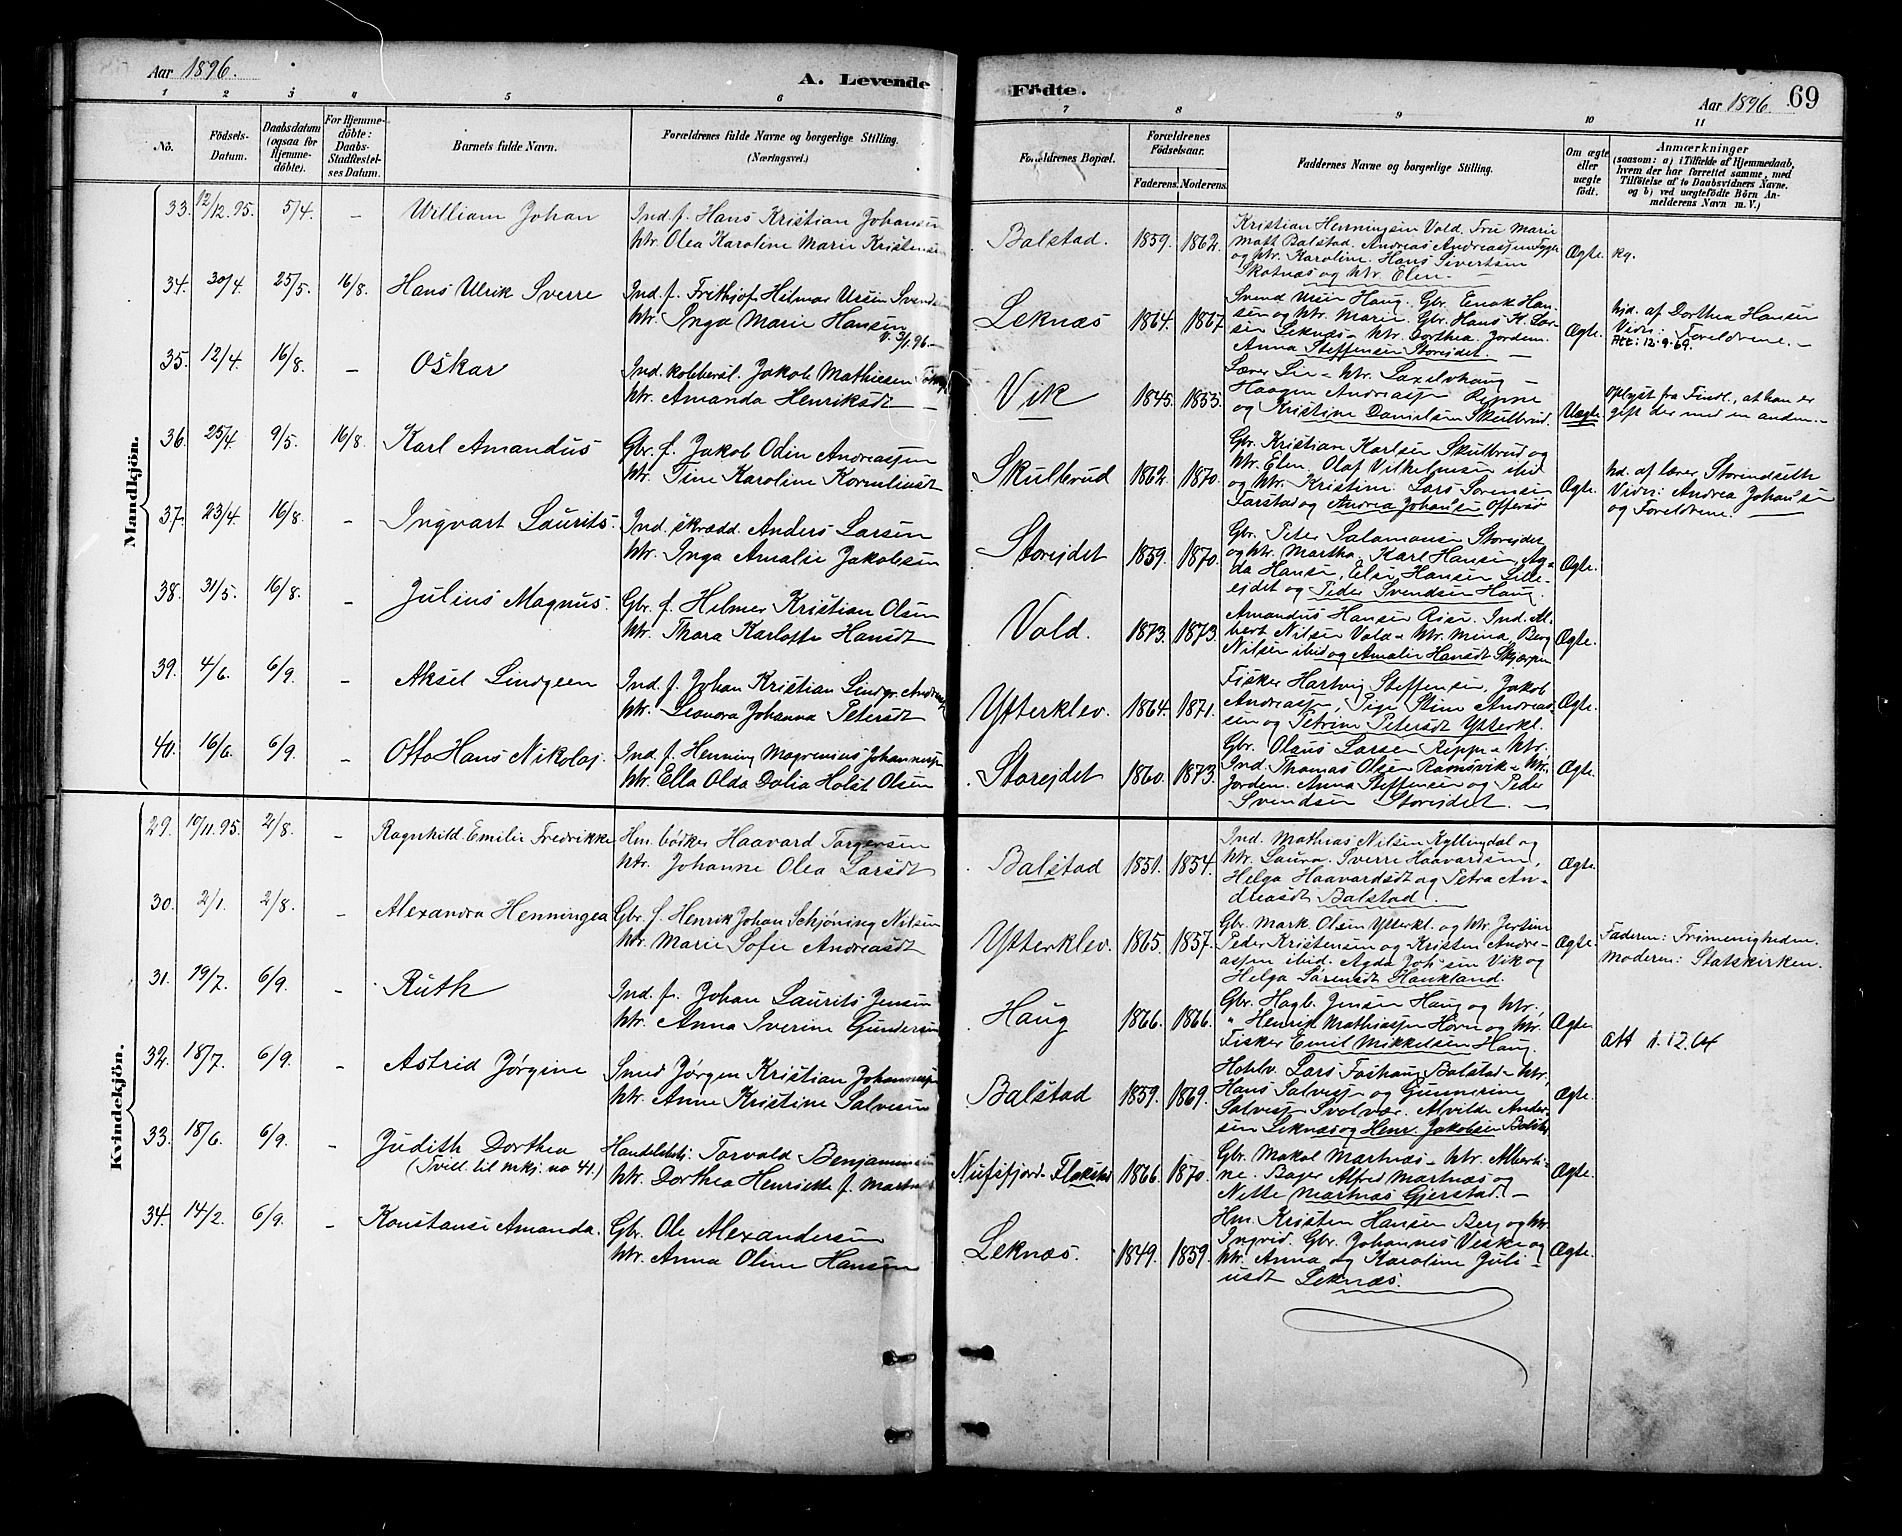 Aar 1896.
A. Levende Födte.
Aar 1896. 69
1 2 3 4 5 6 7 8 9 10 11
No.
Födsels-Datum.
Daabsdatum (ogsaa for Hjemme-döbte).
For Hjemme-döbte: Daabs-Stadfæstel-ses Datum.
Barnets fulde Navn.
Forældrenes fulde Navne og borgerlige Stilling.
(Næringsvei.)
Forældrenes Bopæl.
Forældrenes Födselsaar.
Faderens. Moderens.
Faddernes Navne og borgerlige Stilling.
Om ægte eller uægte födt.
Anmærkninger
(saasom: a) i Tilfælde af Hjemmedaab, hvem der har forrettet samme, med Tilföielse af to Daabsvidners Navne. og b) ved uægtefödte Börn Anmelderens Navn m. V.)
Mandkjön.
33. 12/12.95. 5/4. - William Johan
Ind. f. Hans Kristian Johansen
htr. Olea Karoline Marie Kristensen
Balstad. 1859. 1862.
Kristian Henningsen Vold. Fru Marie
Matt Balstad. Andreas Andreassen Fygle
og htr. Karoline. Hans Sivertsen
Skotnæs og htr. Elen. -
Ægte. kq.
34. 30/4. 25/5. 16/8. Hans Ulrik Sverre
Ind. f. Frithjof Hilmar Ursin Svendsen
htr. Inga Marie Hansen
v. 3/1.96.-
Leknæs 1864. 1867
Svend Ursin Haug. Gbr. Enok Han-
sen og htr. Marie. Gbr. Hans K. Lar-
sen Leknæs - htr. Dorthea. Jordem.
Anna Steffensen Storeidet. -
Ægte.
hjd. af Dorthea Hansen
Vidn: Foreldrene. -
Att: 12.9.69.
35. 12/4. 16/8. - Oskar
Ind. kobbersl. Jakob Mathiesen
htr. Amanda Henriksdt -
Vik 1845. 1853.
Lærer Lie - htr.
Haagen Andreassen Reppe
og Kristine Danielsen Skulbrud.
Uægte.
Oplyst fra Findl., at han er
gift der med en anden. -
36. 25/4. 9/5. 16/8. Karl Amandus
Gbr. f. Jakob Odin Andreassen
htr. Tine Karoline Korneliusdt
Skulbrud 1862. 1870.
Gbr. Kristian Karlsen Skulbrud og
htr. Elen. Olaf Vilhelmsen ibid
og htr. Kristine. Lars Sørensen
Farstad og Andrea Johansen Offersø
Ægte.
hd. af lærer Storindseth
Vidn: Andrea Johansen
og Foreldrene.
37. 23/4. 16/8. - Ingvart Laurits.
Ind. skrædd. Anders Larsen
htr. Inga Amalie Jakobsen
Storeidet 1859. 1870.
Gbr. Peter Salamonsen Storeidet
og htr. Martha. Karl Hansen, Ag-
da Hansen, Elen Hansen Lille-
eidet og Peder Svendsen Haug.
Ægte.
38. 31/5. 16/8. - Julius Magnus.
Gbr. f. Helmer Kristian Olsen
htr. Thora Karlotte Hansdt
Vold. 1873. 1873.
Amandus Hansen Rise. Ind. Al-
bert Nilsen Vold - htr. Mina, Berg
Nilsen ibid og Amalie Hansdt Skjerpen
Ægte.
39. 4/6. 6/9. - Aksel Lindgeen
Ind. f. Johan Kristian Lindgr. Andreassen
htr. Leonora Johanna Petersdt
Ytterklev. 1864. 1871.
Fisker Hartvig Steffensen, Jakob
Andreassen, Pige Stine Andreas-
sen og Petrine Petersdt Ytterkl.
Ægte.
40. 16/6. 6/9. - Otto Hans Nikolai.
Ind. f. Henning Magrenius Johannessen
htr. Ella Olda Dolia Holst Olsen
Storeidet 1860. 1873.
Gbr. Olaus Larsen Reppe - htr.
Ind. Thomas Olsen Ramsvik - htr.
Jordem. Anna Steffensen og Peder
Svendsen Storeidet. -
Ægte.
Kvindekjön.
29. 10/11.95. 2/8. - Ragnhild Emilie Fredrikke
Hm. bødker Haavard Torgersen
htr. Johanne Olea Larsdt
Balstad 1851. 1854.
Ind. Mathias Nilsen Kyllingdal og
htr. Laura. Sverre Haavardsen,
Helga Haavardsdt og Petra An-
dreasdt Balstad.
Ægte.
30. 2/1. 2/8. - Alexandra Henningea
Gbr. f. Henrik Johan Schjøning Nilsen
htr. Marie Sofie Andreasdt
Ytterklev. 1865. 1857.
Gbr. Mark. Olsen Ytterkl. og htr. Jertine
Peder Kristensen og Kristen Andre-
assen ibid. Agda Joh-sen Vik og
Helga Sørensdt Haukland.
Ægte.
Faderen: Frimenigheden.
Moderen: Statskirken.
31. 19/7. 6/9. - Ruth
Ind. f. Johan Laurits Jensen
htr. Anna Iverine Gundersen
Haug 1866. 1866.
Gbr. Hagb. Jensen Haug og htr,
" Henrik Mathiassen Horn og htr.
Fisker Emil Mikkelsen Haug.
Ægte.
Att 1.12.64
32. 18/7. 6/9. - Astrid Jørgine
Smed Jørgen Kristian Johannessen
htr. Anne Kristine Salvesen
Balstad 1859. 1869.
Lars Balstad - htr,
Hans Salvesen og Gunnerine
Salvesen Svolvær. Alvilde Ander-
sen Leknæs og Henr. Jakobsen Balstad
Ægte.
33. 18/6. 6/9. - Judith Dorthea
(Tvill. til mkj. no 41.)
Handelsbetj. Torvald Benjaminsen
htr. Dorthea Henriette f. Martnæs
Nusfjord. Flakstad 1866. 1870.
Gbr. Makol Martnæs - htr. Alberti-
ne. Bager Alfred Martnæs og
Nette Martnæs Gjerstad. -
Ægte.
34. 14/2. 6/9. - Konstanse Amanda.
Gbr. Ole Alexandersen
htr. Anna Oline Hansen
Leknæs. 1849. 1859.
Hm. Kristen Hansen Berg og htr.
Ingrid. Gbr. Johannes Veske og
htr. Anna og Karoline Juli-
usdt Leknæs.
Ægte.